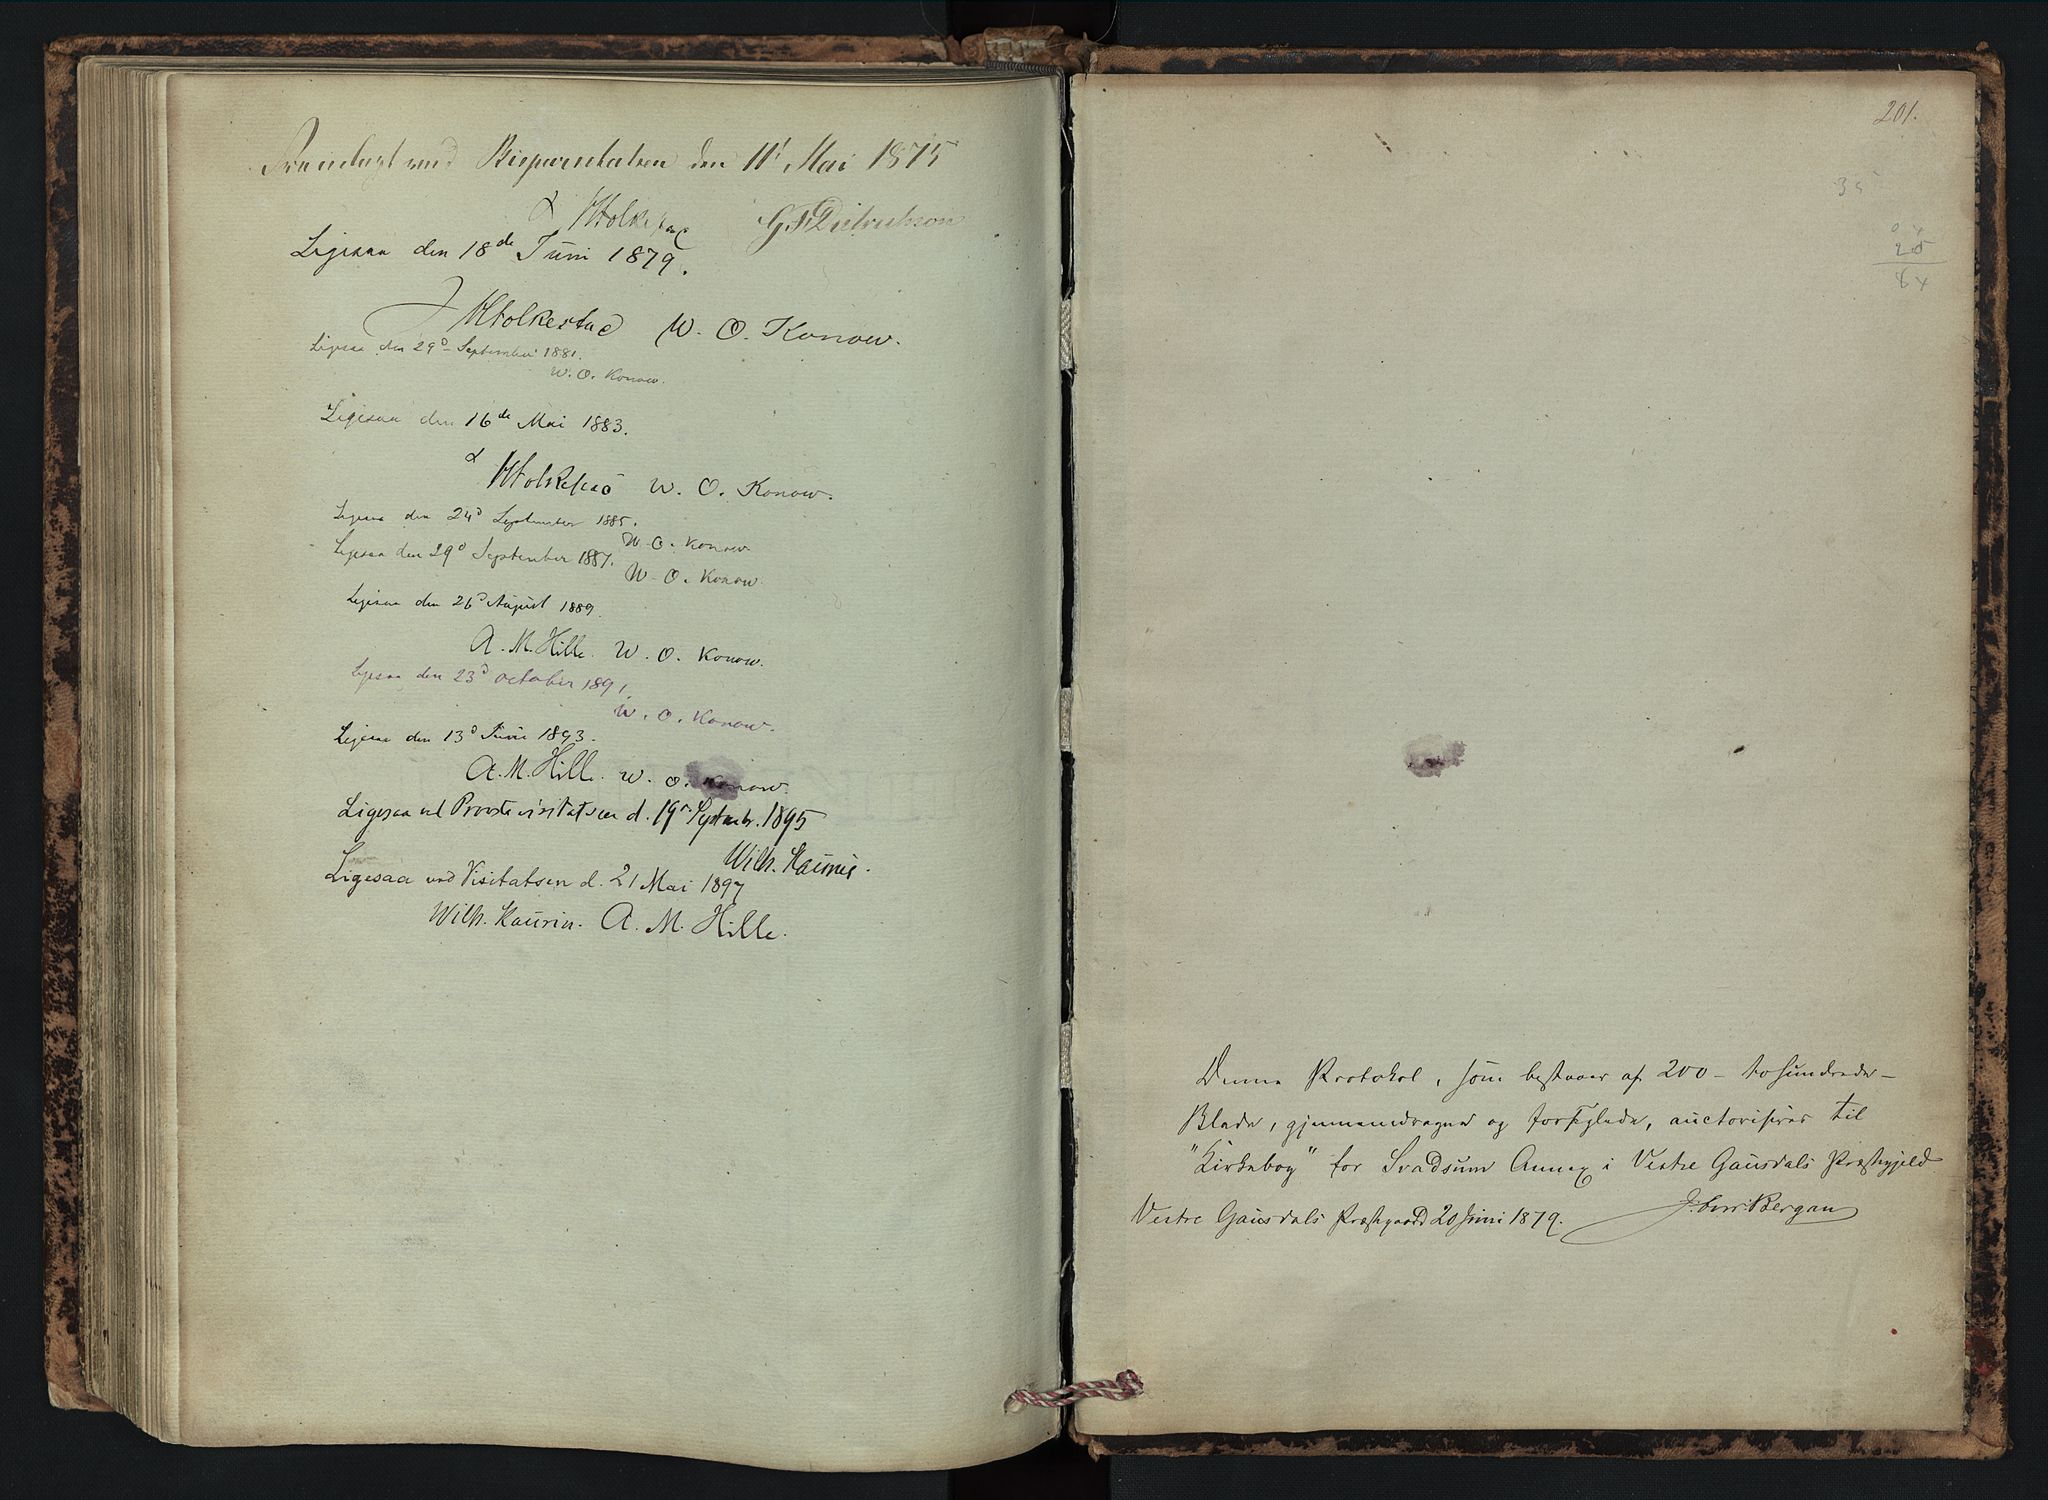 Fremlagt ved Bispevisitatsen den 11' Mai 1875
H Folkestad G. F. Dietrichson
Ligesaa den 18de Juni 1879.
H Folkestad W. O. Konow.
Ligesaa den 29d September 1881.
W. O. Konow.
Ligesaa den 16de Mai 1883.
H Folkestad W. O. Konow.
Ligesaa den 24d September 1885.
W. O. Konow
Ligesaa den 29d September 1887.
W. O. Konow.
Ligesaa den 26d August 1889.
A. M. Hille. W. O. Konow.
Ligesaa den 23d October 1891.
W. O. Konow.
Ligesaa den 13d Juni 1893.
A. M. Hille. W. O. Konow.
Ligesaa ved Provstevisitatsen d. 19. Septembr. 1895
Wilh. Kaurin.
Ligesaa ved Visitatsen d. 21 Mai 1897
Wilh. Kaurin. A. M. Hille.
201.
35
25
64
Denne Protokol, som bestaaer af 200 – tohundrede –
Blade, gjennemdragne og forseglede, auctoriseres til
"Kirkebog" for Svadsum Annex i Vestre Gausdals Præstegjeld
Vestre Gausdals Præstegaard 20 Juni 1879. Bergan